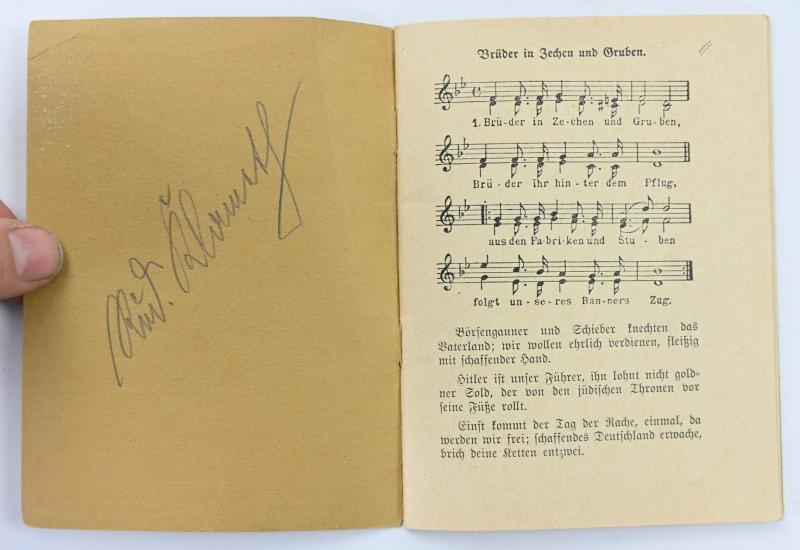 Rud.
Brüder in Zechen und Gruben.
1. Brü-der in Ze-chen und Gru-ben,
Brü-der ihr hin-ter dem Pflug,
aus den Fa-bri-ken und Stu-ben
folgt un-se-res Ban-ners Zug.
Börsengauner und Schieber knechten das
Vaterland; wir wollen ehrlich verdienen, fleißig
mit schaffender Hand.
Hitler ist unser Führer, ihn lohnt nicht gold-
ner Sold, der von den jüdischen Thronen vor
seine Füße rollt.
Einst kommt der Tag der Rache, einmal, da
werden wir frei; schaffendes Deutschland erwache,
brich deine Ketten entzwei.